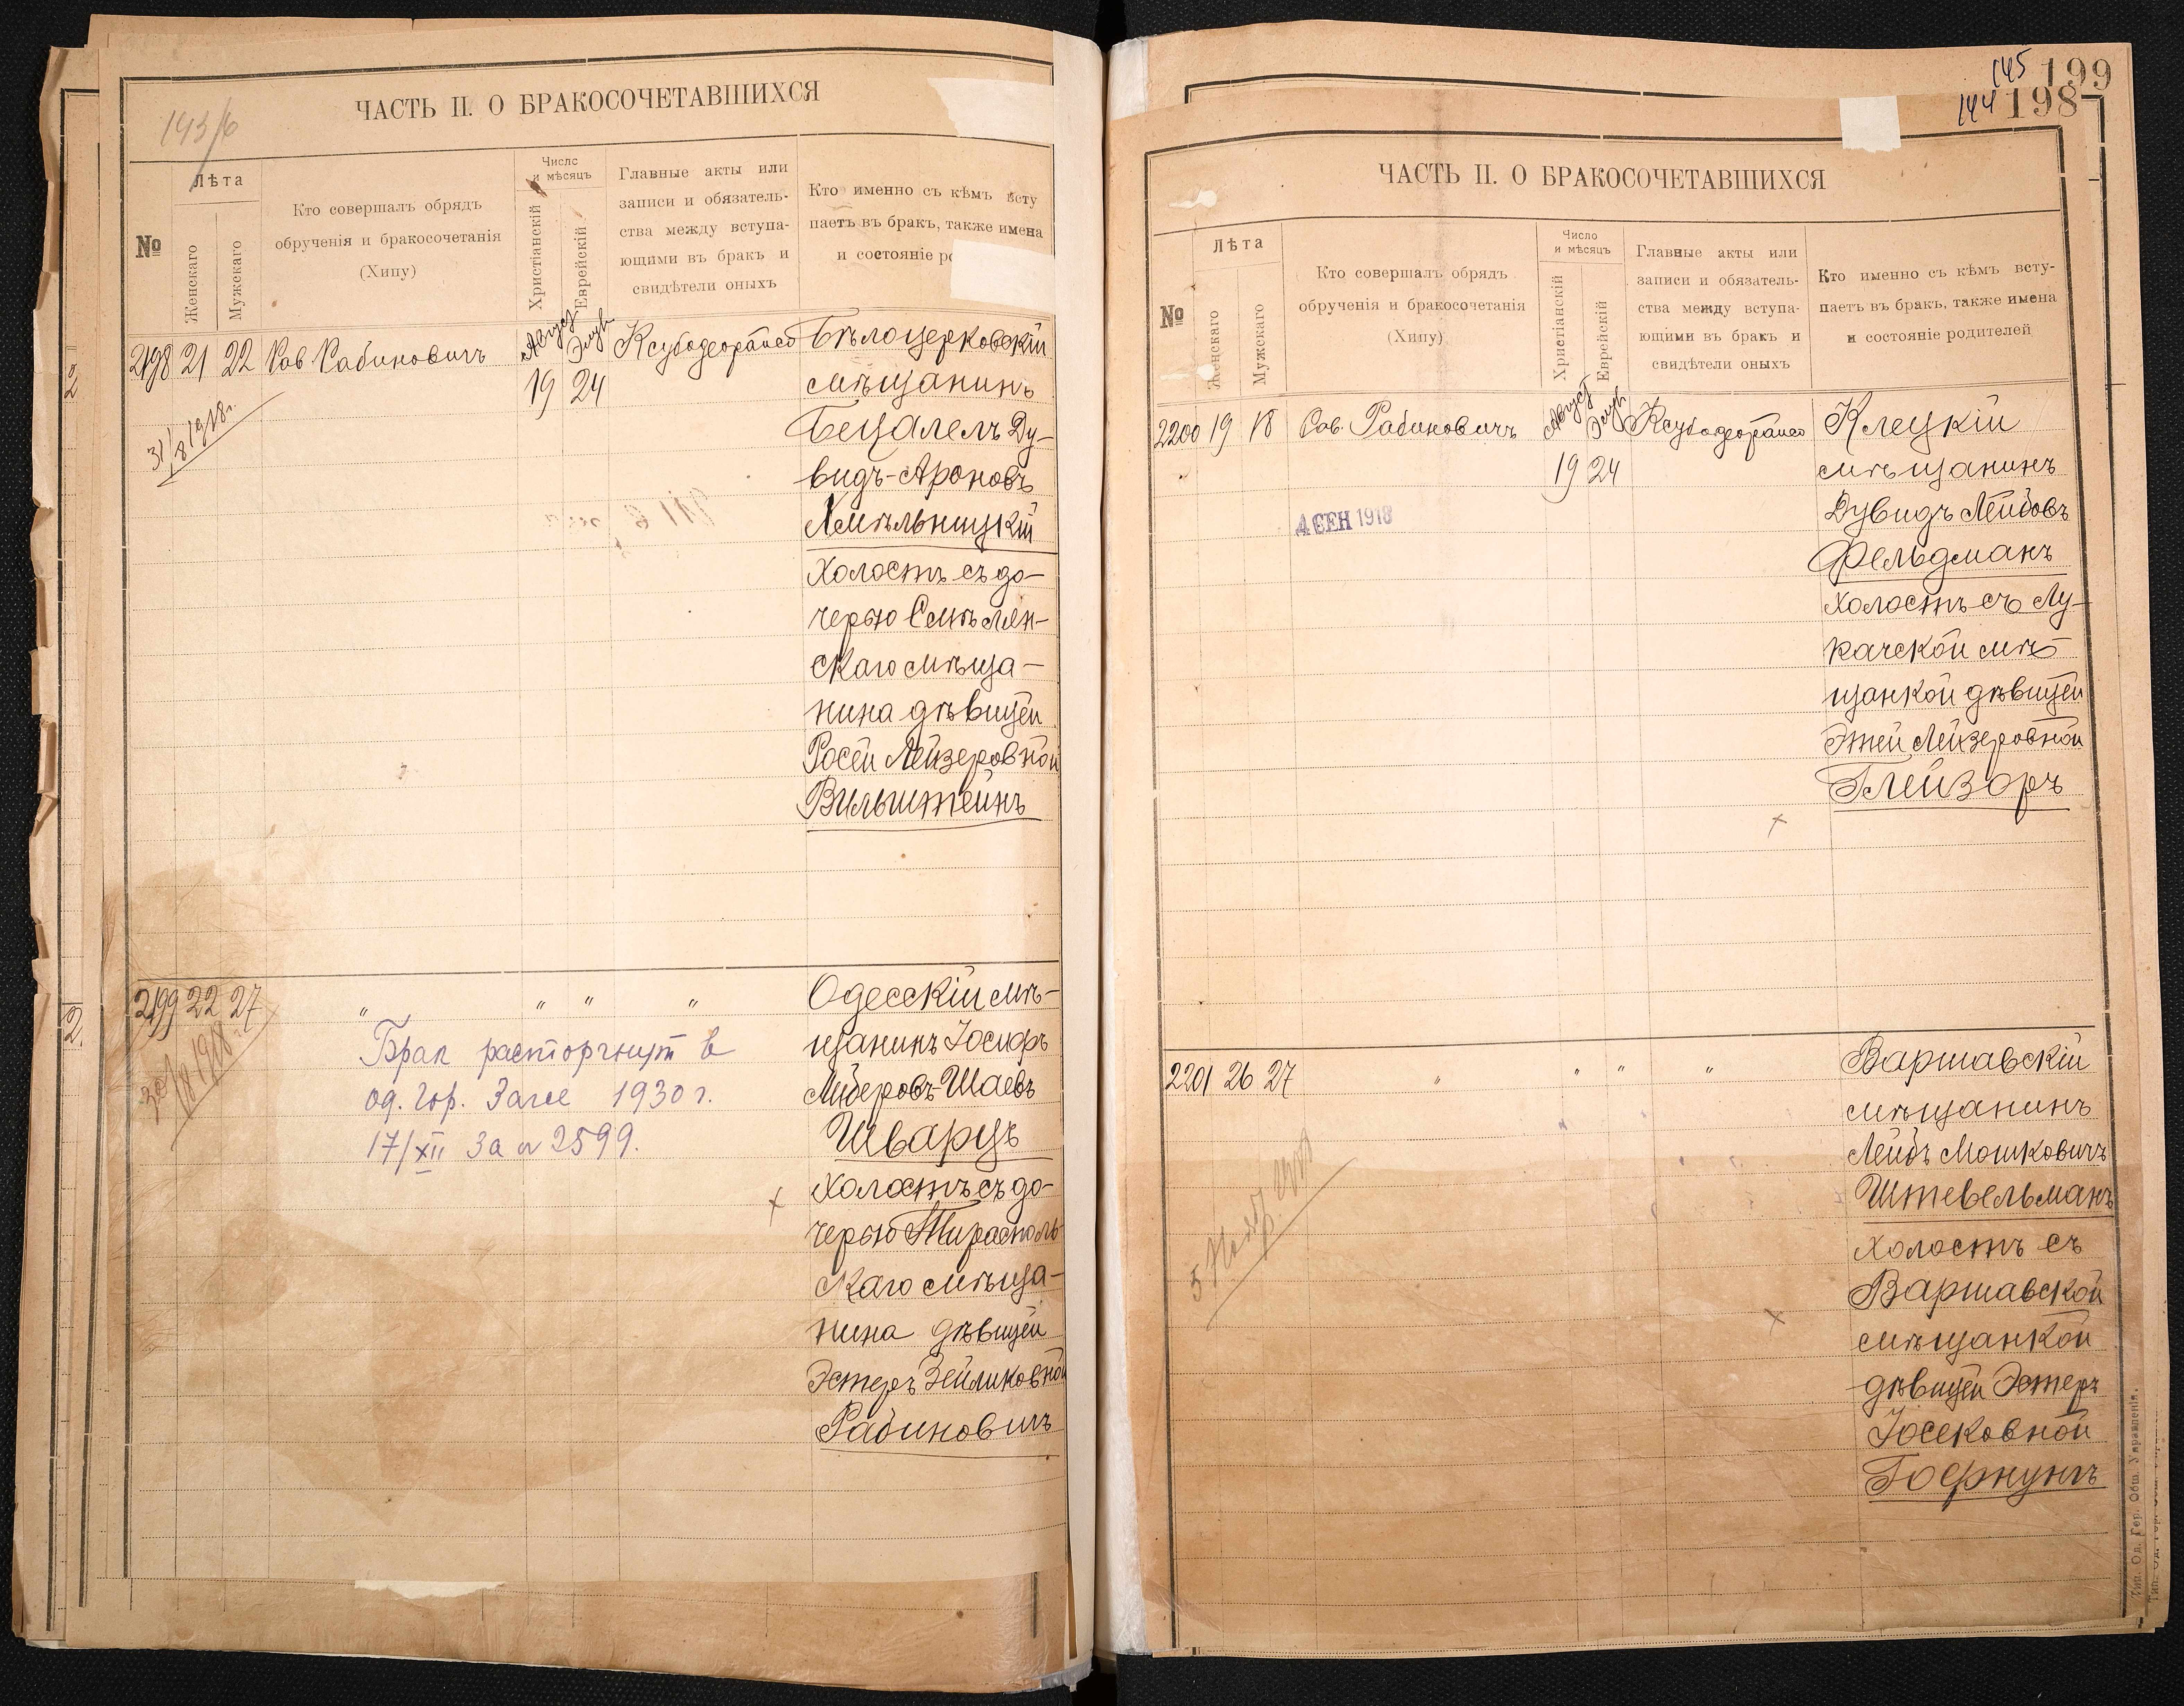 143/6
ЧАСТЬ II. О БРАКОСОЧЕТАВШИХСЯ
№
Лѣта
Женскаго
Мужскаго
Кто совершалъ обрядъ
обрученія и бракосочетанія
(Хипу)
Число
и мѣсяцъ
Христіанскій
Еврейскій
Главные акты или
записи и обязатель-
ства между вступа-
ющими въ бракъ и
свидѣтели оныхъ
Кто именно съ кѣмъ всту
паетъ въ бракъ, также имена
и состояніе
2198 21 22 Рав. Рабиновичъ
Август Элул
19 24
31/8 1918 г.
Бѣлоцерковскій
мѣщанинъ
Бецалелъ Ду-
видъ-Ароновъ
Хмѣльницкій
Холостъ съ до-
черью Смѣлян-
скаго мѣща-
нина дѣвицей
Росей Лейзеровной
Вильштейнъ
2199 22 27 " " " "
30/8 1918 г.
Брак расторгнут в
од. гор. Загсе 1930 г.
17/XII за N 2599.
Одесскій мѣ-
щанинъ Іосифъ
Шаевъ
Шварцъ
Холостъ съ до-
черью Тирасполь-
скаго мѣща-
нина дѣвицей
Эстеръ Зейликовной
Рабиновичъ
145 199
144 198
ЧАСТЬ II. О БРАКОСОЧЕТАВШИХСЯ
№
Лѣта
Женскаго
Мужскаго
Кто совершалъ обрядъ
обрученія и бракосочетанія
(Хипу)
Число
и мѣсяцъ
Христіанскій
Еврейскій
Главные акты или
записи и обязатель-
ства между вступа-
ющими въ бракъ и
свидѣтели оныхъ
Кто именно съ кѣмъ всту-
паетъ въ бракъ, также имена
и состояніе родителей
2200 19 18 Рав. Рабиновичъ
Август Элул
19 24
4 СЕН 1918
Клецкій
мѣщанинъ
Дувидъ Лейбовъ
Фельдманъ
холостъ съ Лу-
качской мѣ-
щанкой дѣвицей
Этей Лейзеровной
Глейзоръ
2201 26 27 " " " "
Варшавскій
мѣщанинъ
Лейбъ Мошковичъ
Штевельманъ
холостъ съ
Варшавской
мѣщанкой
дѣвицей Эстеръ
Іосековной
Гофнунгъ
Тип. Од. Гор. Общ. Управленія.